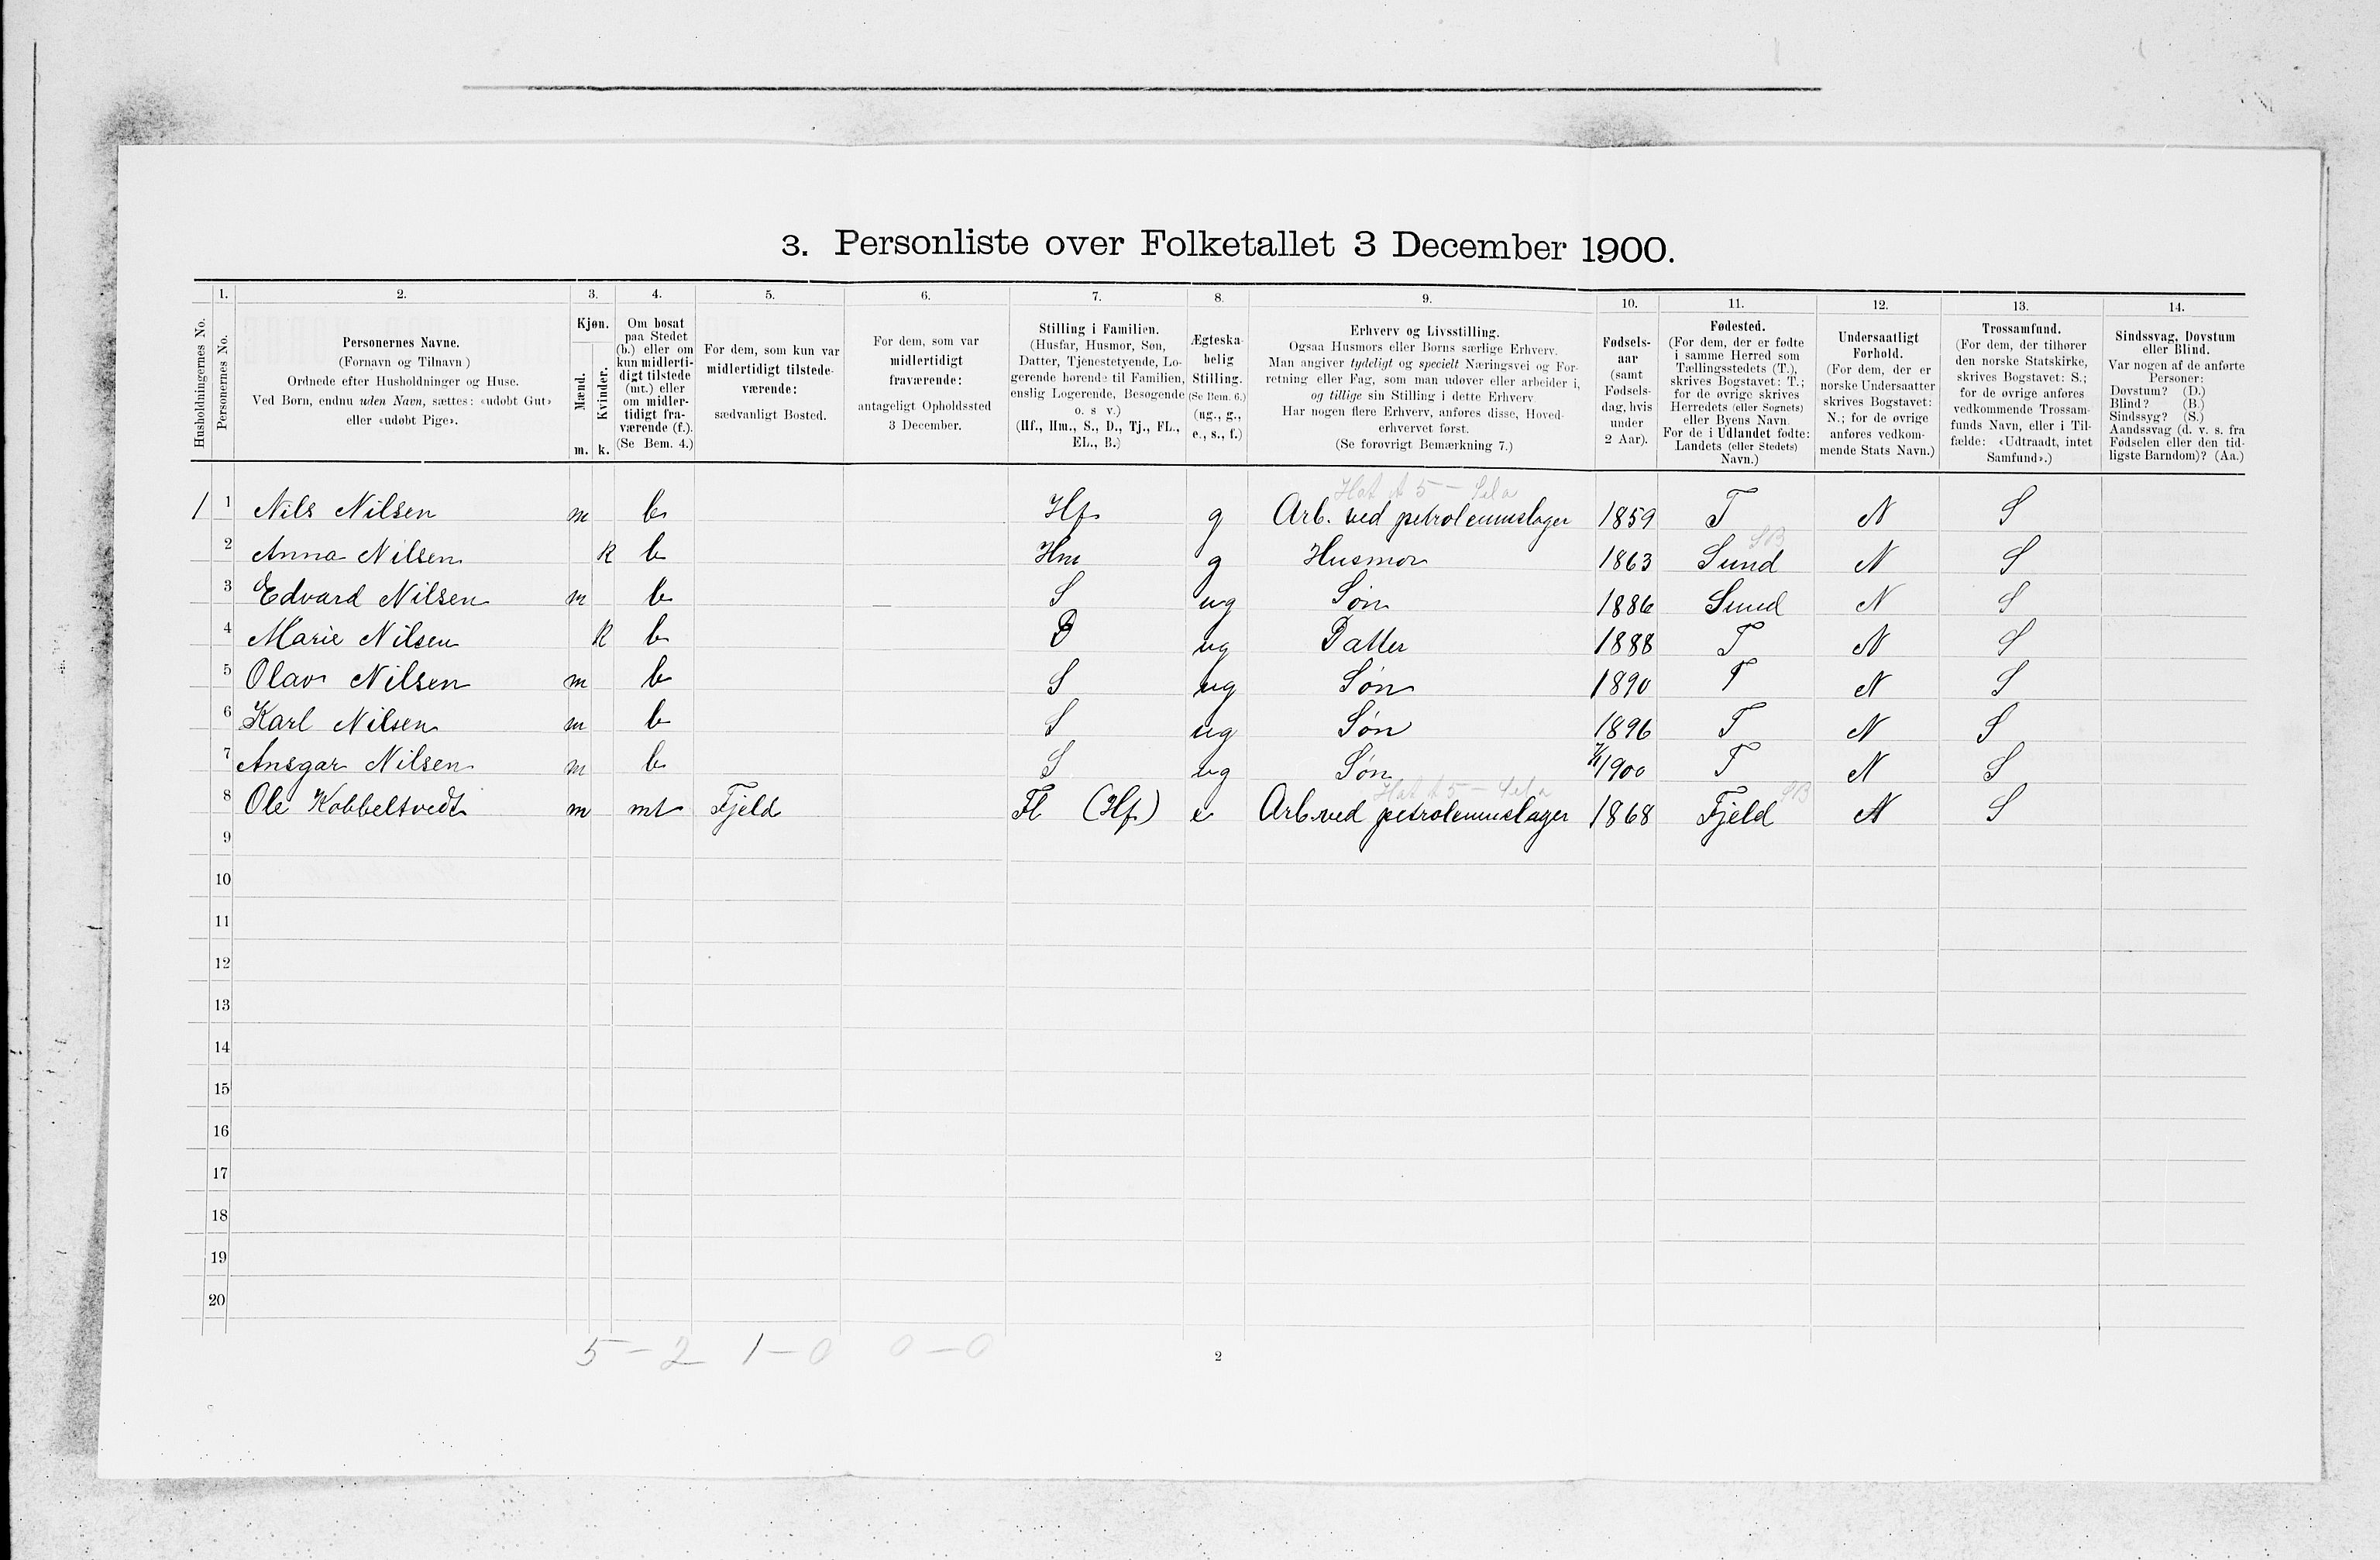 3. Personliste over Folketallet 3 December 1900.
1. 2. 3. 4. 5. 6. 7. 8. 9. 10. 11. 12. 13. 14.
Husholdningernes No.
Personernes No.
Personernes Navne.
(Fornavn og Tilnavn )
Ordnede efter Husholdninger og Huse.
Ved Børn, endnu uden Navn, sættes: «udøbt Gut»
eller «udøbt Pige».
Kjøn.
Mænd.
Kvinder.
m. k.
Om bosat
paa Stedet
(b.) eller om
kun midlerti-
digt tilstede
(mt.) eller
om midler-
tidigt fra-
værende (f.).
(Se Bem. 4.)
For dem, som kun var
midlertidigt tilstede-
værende:
sædvanligt Bosted.
For dem, som var
midlertidigt
fraværende:
antageligt Opholdssted
3 December.
Stilling i Familien.
(Husfar, Husmor, Søn,
Datter, Tjenestetyende, Lo-
gerende hørende til Familien,
enslig Logerende, Besøgende
o. s v.)
(Hf., Hm., S., D., Tj., FL.,
EL., B.)
Ægteska-
belig
Stilling.
(Se Bem. 6.)
(ug., g.,
e., s., f.)
Erhverv og Livsstilling.
Ogsaa Husmors eller Børns særlige Erhverv.
Man angiver tydeligt og specielt Næringsvei og For-
retning eller Fag, som man udøver eller arbeider i,
og tillige sin Stilling i dette Erhverv
Har nogen flere Erhverv, anføres disse, Hoved-
erhvervet først.
(Se forøvrigt Bemærkning 7.)
Fødsels-
aar
(samt
Fødsels-
dag, hvis
under
2 Aar).
Fødested.
(For dem, der er fødte
i samme Herred som
Tællingsstedets (T.),
skrives Bogstavet: T.;
for de øvrige skrives
Herredets (eller Sognets)
eller Byens Navn.
For de i Udlandet fødte:
Landets (eller Stedets)
Navn.)
Undersaatligt
Forhold.
(For dem, der er
norske Undersaatter
skrives Bogstavet:
N.; for de øvrige
anføres vedkom-
mende Stats Navn.)
Trossamfund.
(For dem, der tilhører
den norske Statskirke,
skrives Bogstavet: S.;
for de øvrige anføres
vedkommende Trossam-
funds Navn, eller i Til-
fælde: «Udtraadt, intet
Samfund».)
Sindssvag, Døvstum
eller Blind.
Var nogen af de anførte
Personer:
Døvstum? (D.)
Blind? (B.)
Sindssyg? (S.)
Aandssvag (d. v. s. fra
Fødselen eller den tid-
ligste Barndom)? (Aa.)
1 1 Nils Nilsen m b Hf g Arb. ved petroleumslager 1859 T N S
2 Anna Nilsen k b Hm g Husmor 1863 Sund N S
3 Edvard Nilsen m b S ug Søn 1886 Sund N S
4 Marie Nilsen k b D ug Datter 1888 T N S
5 Olav Nilsen m b S ug Søn 1890 T N S
6 Karl Nilsen m b S ug Søn 1896 T N S
7 Ansgar Nilsen m b S ug Søn 1900 T N S
8 Ole Kobbeltvedt m mt Fjeld Fl (Hf) e Arb. ved petroleumslager 1868 Fjeld N S
9
10
11
12
13
14
15
16
17
18
19
20
5 - 2 1 - 0 0 - 0
2